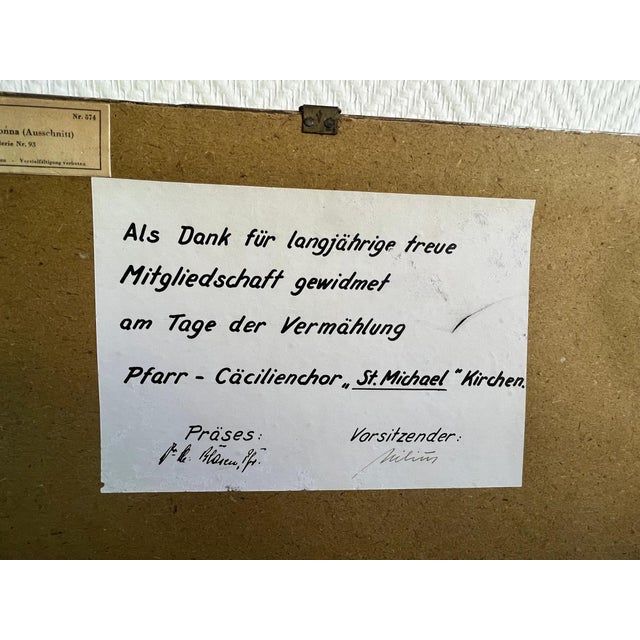 Nr. 574
onna (Ausschnitt)
erie Nr. 93
en - Vervielfältigung verboten
Als Dank für langjährige treue
Mitgliedschaft gewidmet
am Tage der Vermählung
Pfarr - Cäcilienchor „St. Michael" Kirchen.
Präses: Vorsitzender: